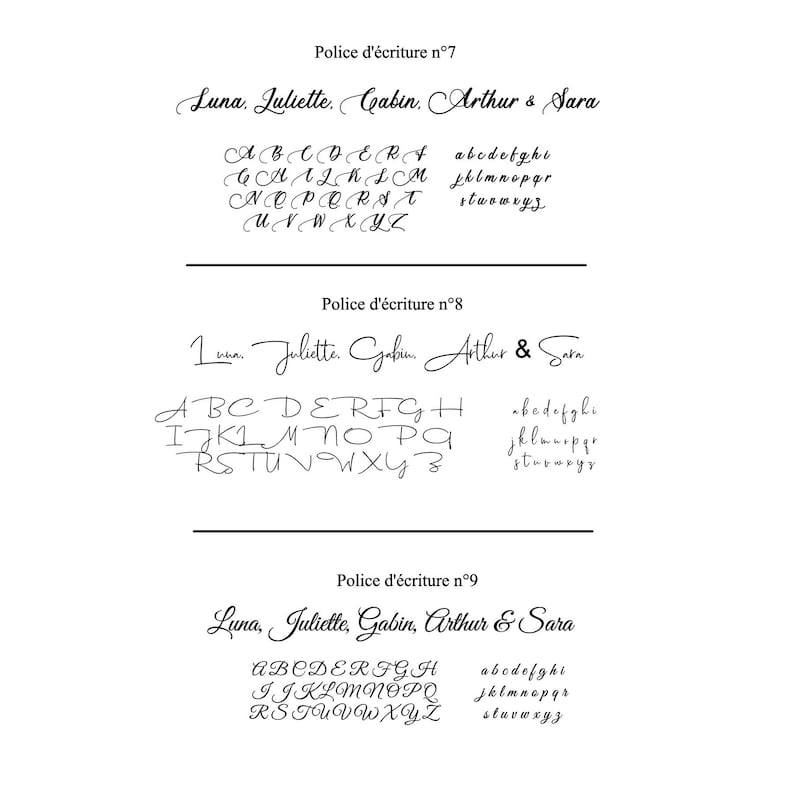 Police d'écriture n°7
Luna, Juliette, Gabin, Arthur & Sara
A B C D E R F
G H I L K L M
N O P Q R S T
U V W X Y Z
a b c d e f g h i
j k l m n o p q r
s t u v w x y z
Police d'écriture n°8
Luna, Juliette, Gabin, Arthur & Sara
A B C D E R F G H
I J K L M N O P Q
R S T U V W X Y Z
a b c d e f g h i
j k l m n o p q r
s t u v w x y z
Police d'écriture n°9
Luna, Juliette, Gabin, Arthur & Sara
A B C D E R F G H
I J K L M N O P Q
R S T U V W X Y Z
a b c d e f g h i
j k l m n o p q r
s t u v w x y z